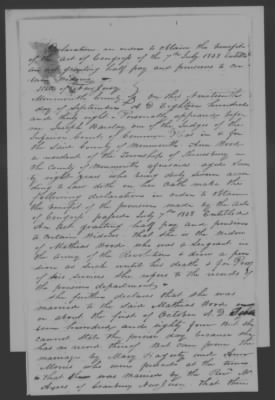 Declaration in order to obtain the benefit
of the act of Congress of the 7th July 1838 Entitled
an act granting half pay and pensions to cer
tain widows
State of New Jersey
Monmouth County } On this Nineteenth
day of September A D Eighteen hundred
and thirty eight Personally appeared before
me Joseph one of the Judges of the
Inferior Court of Common Pleas in & for
the said County of Monmouth Ann Wood
a resident of the Township of in
the County of Monmouth aforesaid aged
eight years who being duly sworn accor
ding to law doth on her oath make the
following declaration in order to obtain
the benefit of the provision made by the act
of Congress passed July 7th 1838 Entitled
An Act granting half pay and pensions
to Certain Widows that she is the widow
of Mathias Wood who was a Sergeant in
the Army of the Revolution & drew a pen
sion as such until his death & for proof
of his services she refers to the records of
the pension department
She further declares that she was
married to the said Mathias Wood on
or about the first of October A D
seven hundred and eighty four But she
cannot state the precise day because she
has no record thereof But can prove the
marriage by Mary and Ann
Morris who were present at the time
That was married by the Revd Mr
of Cranbury New Jersey That there